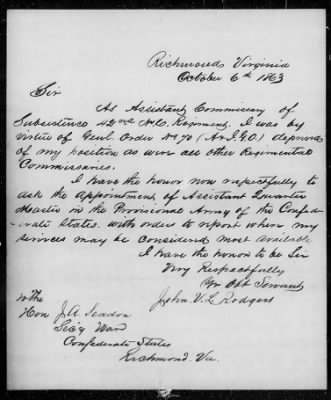 Richmond Virginia
October 6th 1863
Sir
As Assistant Commissary of
Subsistence 42nd N.C. Regiment, I was by
virtue of Genl. Order No 70 (A & I.G.O.) deprived
of my position as were all other Regimental
Commissaries.
I have the honor now respectfully to
ask the appointment of Assistant Quarter
Master in the Provisional Army of the Confed-
erate States, with orders to report where my
services may be considered most available
I have the honor to be Sir
Very Respectfully
Yr Obt Servant
John V. L. Rodgers
To The
Hon J.A. Seddon
Sec'y War
Confederate States
Richmond. Va.